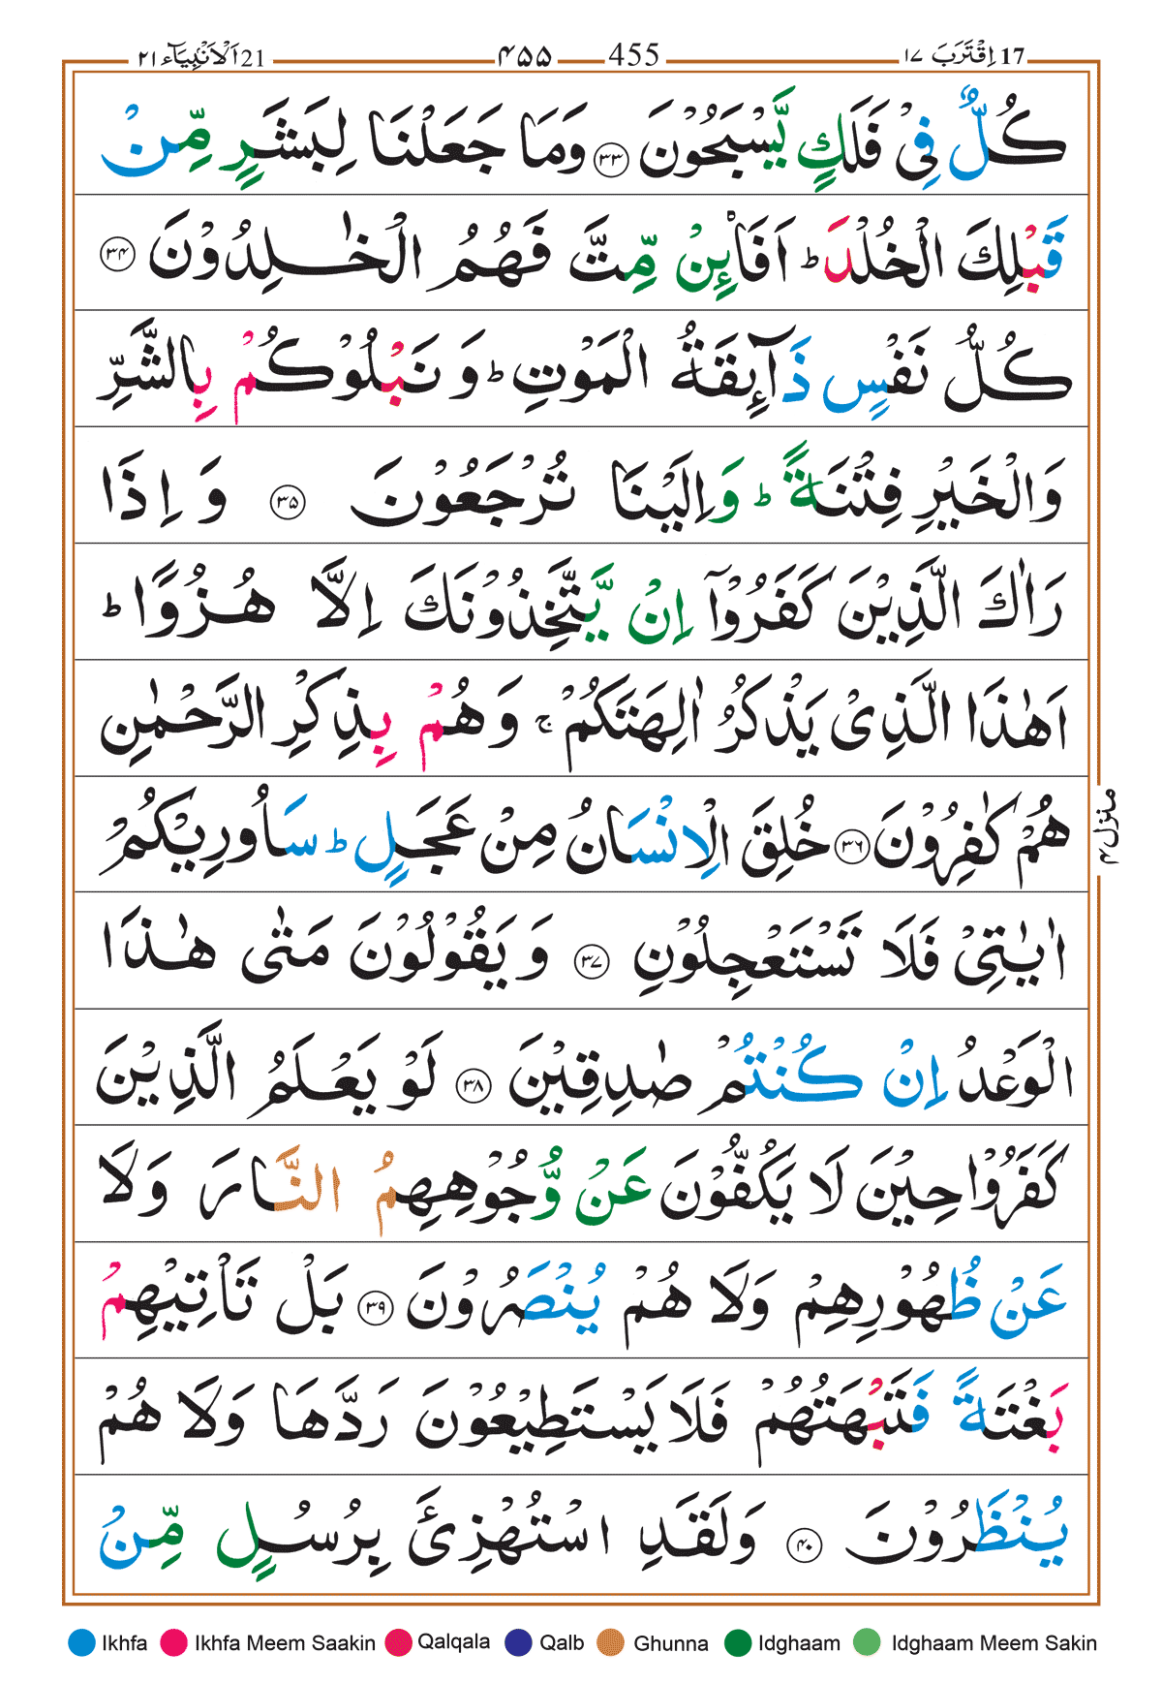 17 اِقْتَرَبَ ١٧ 455 ۴۵۵ 21 اَلْاَنْۢبِيَآء ٢١
كُلٌّ فِیْ فَلَكٍ یَّسْبَحُوْنَ ۳۳ وَمَا جَعَلْنَا لِبَشَرٍ مِّنْ
قَبْلِكَ الْخُلْدَ ؕ اَفَا۠ئِنْ مِّتَّ فَهُمُ الْخٰلِدُوْنَ ۳۴
كُلُّ نَفْسٍ ذَآئِقَةُ الْمَوْتِ ؕ وَ نَبْلُوْكُمْ بِالشَّرِّ
وَالْخَیْرِ فِتْنَةً ؕ وَاِلَیْنَا تُرْجَعُوْنَ ۳۵ وَ اِذَا
رَاٰكَ الَّذِیْنَ كَفَرُوْۤا اِنْ یَّتَّخِذُوْنَكَ اِلَّا هُزُوًا ؕ
اَهٰذَا الَّذِیْ یَذْكُرُ اٰلِهَتَكُمْ ۚ وَهُمْ بِذِكْرِ الرَّحْمٰنِ
هُمْ كٰفِرُوْنَ ۳۶ خُلِقَ الْاِنْسَانُ مِنْ عَجَلٍ ؕ سَاُورِیْكُمْ
اٰیٰتِیْ فَلَا تَسْتَعْجِلُوْنِ ۳۷ وَ یَقُوْلُوْنَ مَتٰی هٰذَا
الْوَعْدُ اِنْ كُنْتُمْ صٰدِقِیْنَ ۳۸ لَوْ یَعْلَمُ الَّذِیْنَ
كَفَرُوْا حِیْنَ لَا یَكُفُّوْنَ عَنْ وُّجُوْهِهِمُ النَّارَ وَلَا
عَنْ ظُهُوْرِهِمْ وَلَا هُمْ یُنْصَرُوْنَ ۳۹ بَلْ تَاْتِیْهِمْ
بَغْتَةً فَتَبْهَتُهُمْ فَلَا یَسْتَطِیْعُوْنَ رَدَّهَا وَلَا هُمْ
یُنْظَرُوْنَ ۴۰ وَلَقَدِ اسْتُهْزِئَ بِرُسُلٍ مِّنْ
منزل ۴
Ikhfa Ikhfa Meem Saakin Qalqala Qalb Ghunna Idghaam Idghaam Meem Sakin